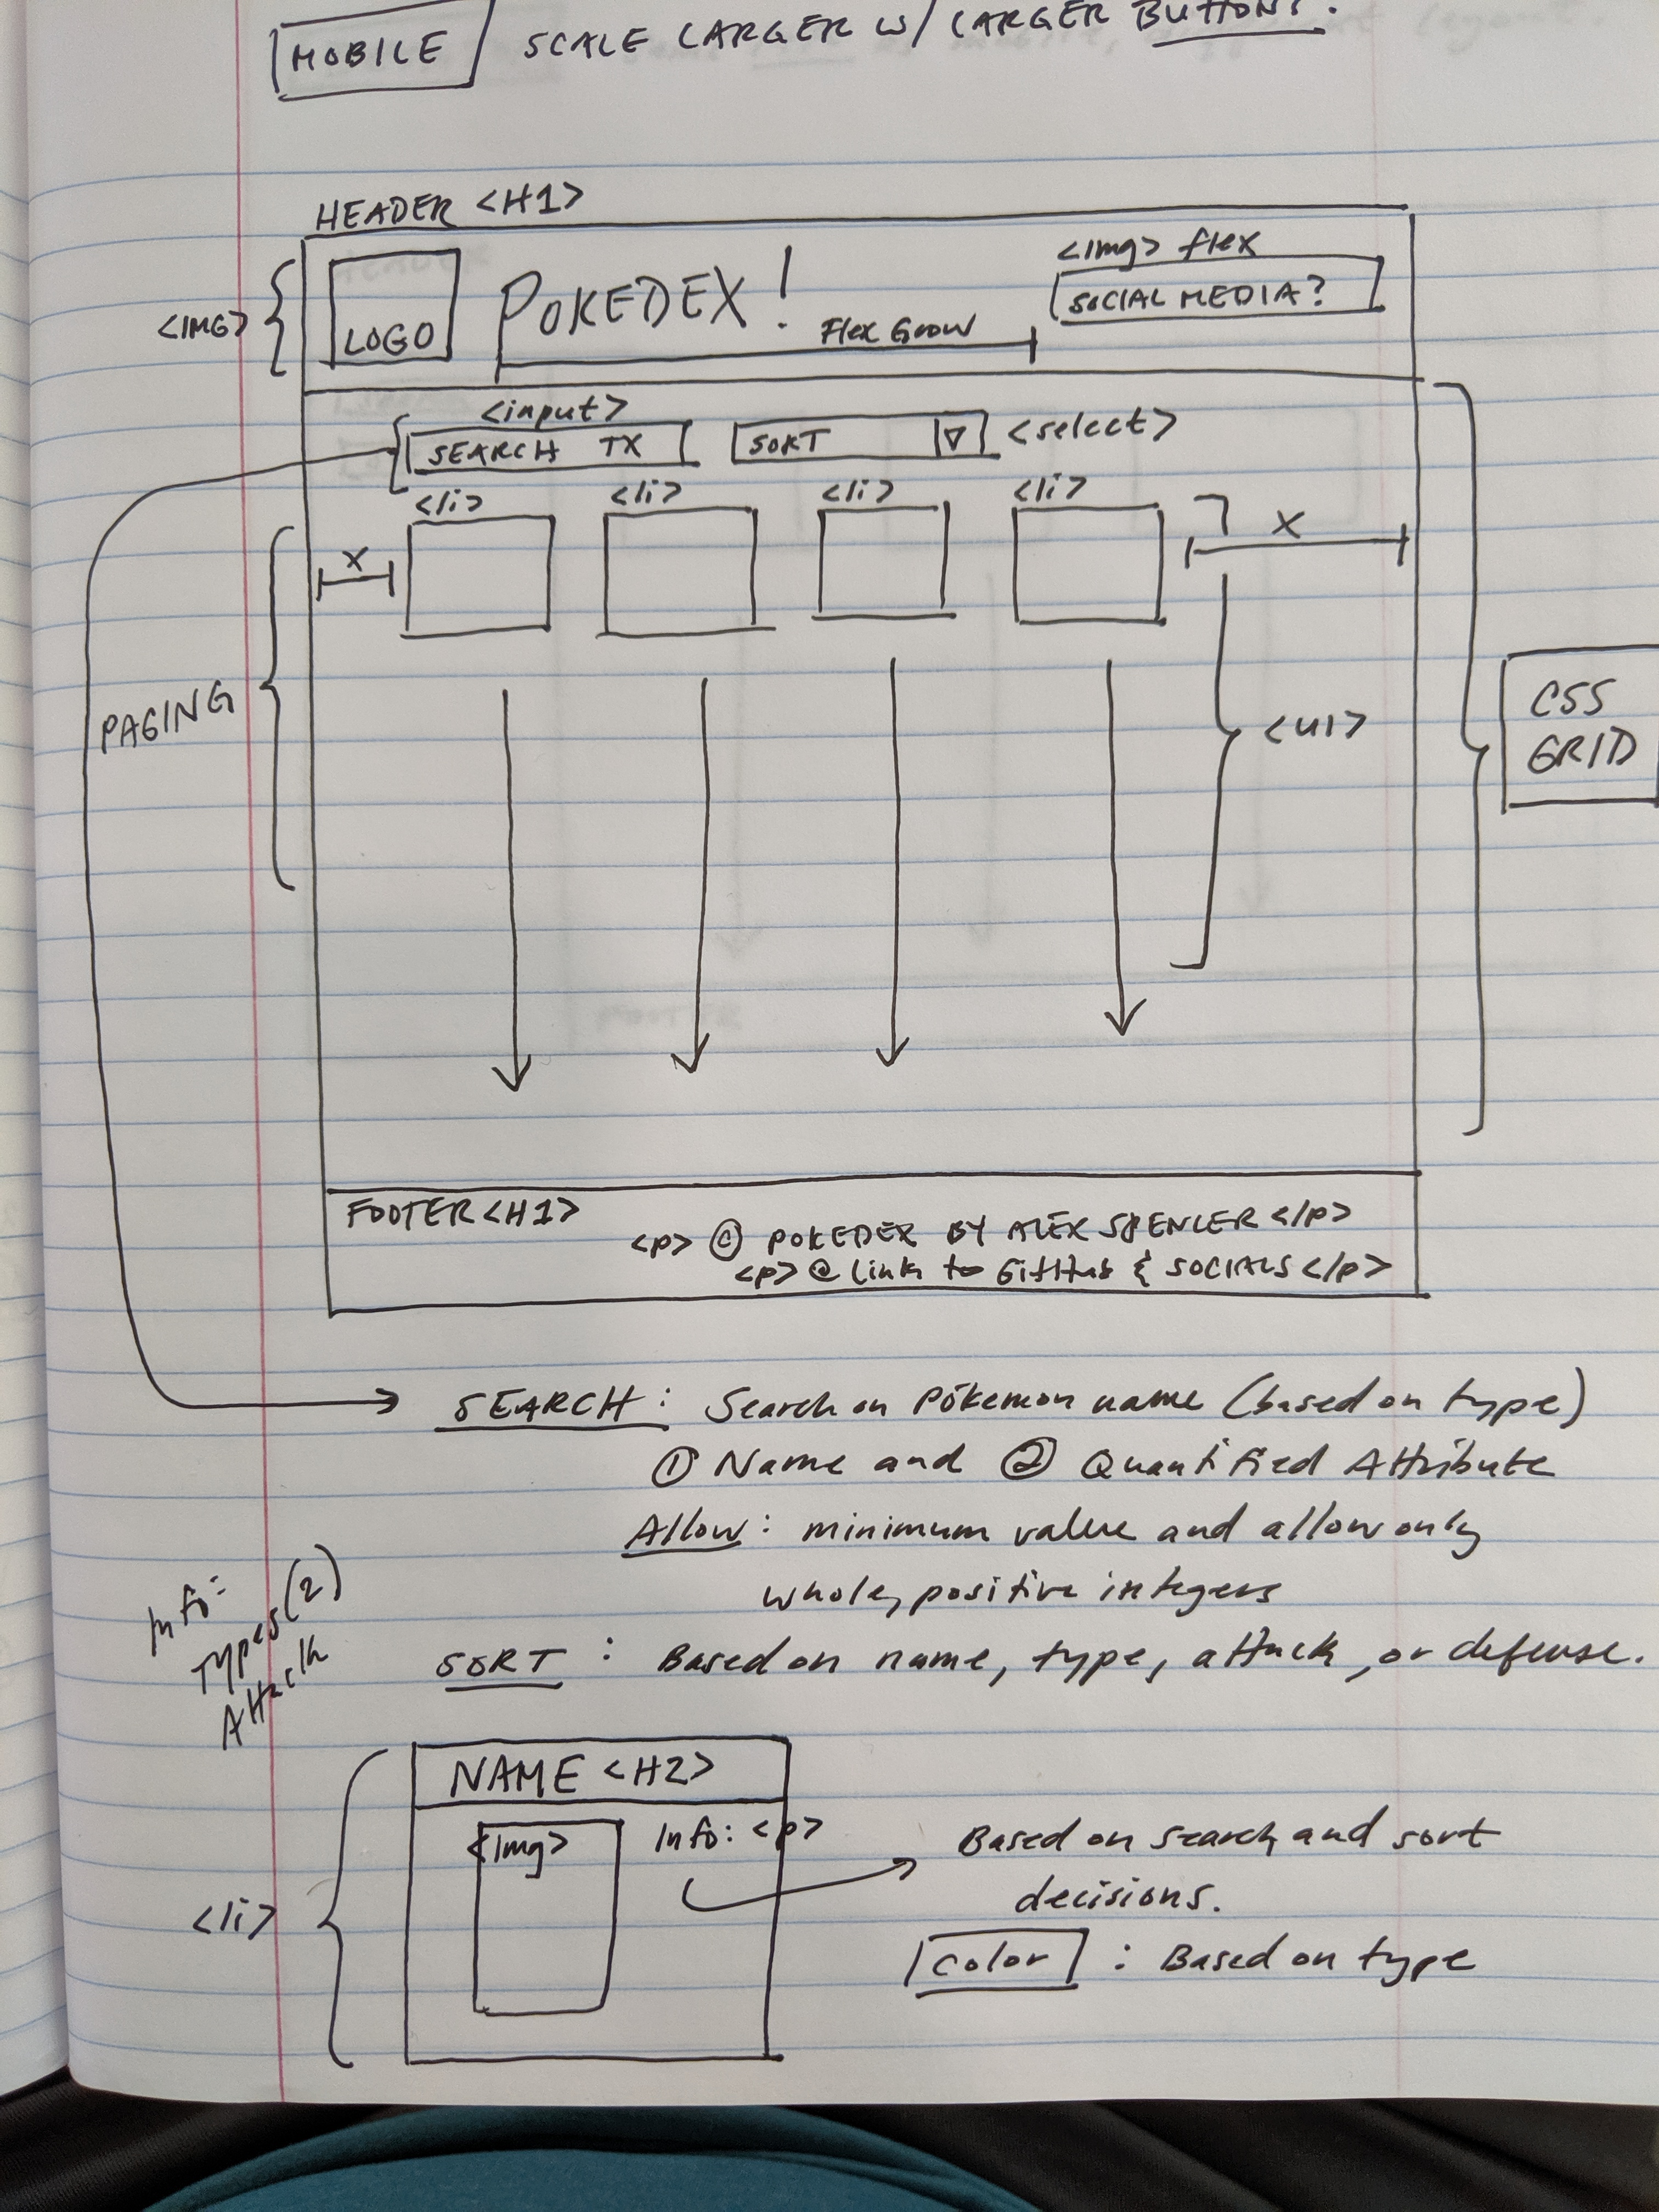 MOBILE SCALE LARGER W/ LARGER BUTTONS.
HEADER <H1>
<IMG>
LOGO
POKEDEX!
Flex Grow
<img> flex
SOCIAL MEDIA?
<input>
SEARCH TX
SORT
<select>
<li> <li> <li> <li>
X
X
PAGING
<ul>
CSS
GRID
FOOTER <H1>
<p> © POKEDEX BY ALEX SPENCER </p>
<p> @ link to GitHub & SOCIALS </p>
SEARCH: Search on Pokemon name (based on type)
① Name and ② Quantified Attribute
Allow: minimum value and allow only
whole, positive integers
SORT: Based on name, type, attack, or defense.
Info:
Types (2)
Attack
<li>
NAME <H2>
<img>
Info: <p>
Based on search and sort
decisions.
color : Based on type